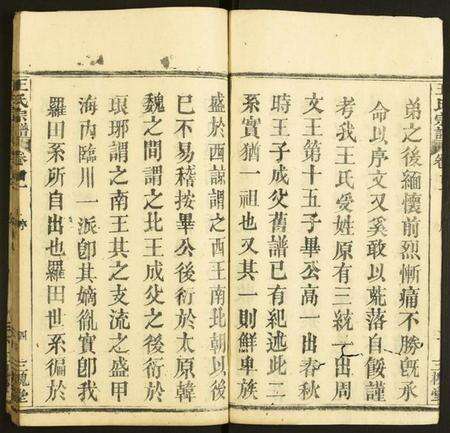 弟之後緬懷前烈慚痛不勝旣承
命以序文又奚敢以荒落自餒謹
考我王氏受姓原有三統一出周
文王第十五子畢公高一出春秋
時王子成父舊譜已有紀述此二
系實猶一祖也又其一則鮮卑族
王氏宗譜 卷
盛於西諒謂之西王南北朝以後
已不易稽按畢公後衍於太原韓
魏之間謂之北王成父之後衍於
琅琊謂之南王其之支流之盛甲
海內臨川一派卽其嫡胤實卽我
羅田系所自出也羅田世系徧於
王氏宗譜 卷首
四 三槐堂